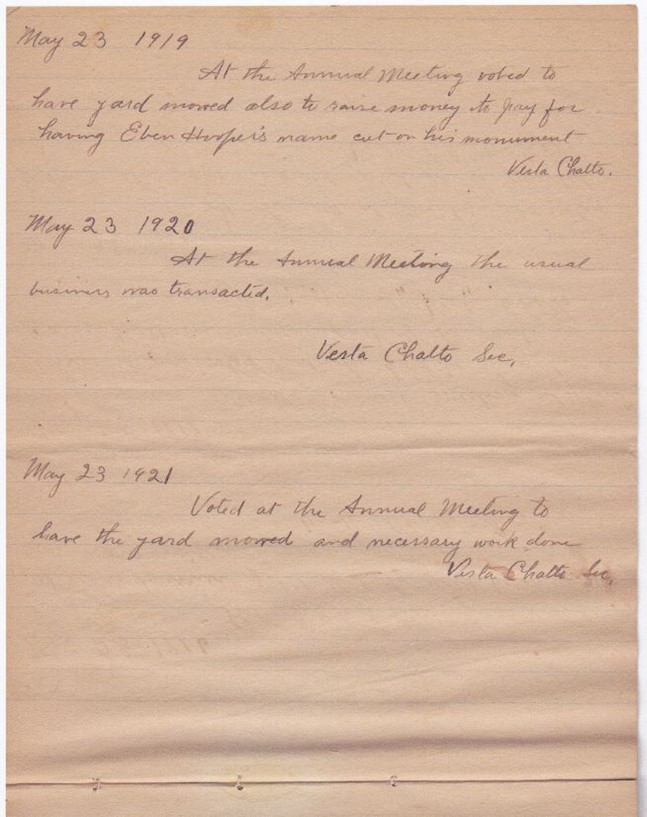 May 23 1919
At the Annual Meeting voted to
have yard mowed also to raise money to pay for
having Eben Hooper's name cut on his monument
Vesta Chatto.
May 23 1920
At the Annual Meeting the usual
business was transacted.
Vesta Chatto Sec.
May 23 1921
Voted at the Annual Meeting to
have the yard mowed and necessary work done
Vesta Chatto Sec.